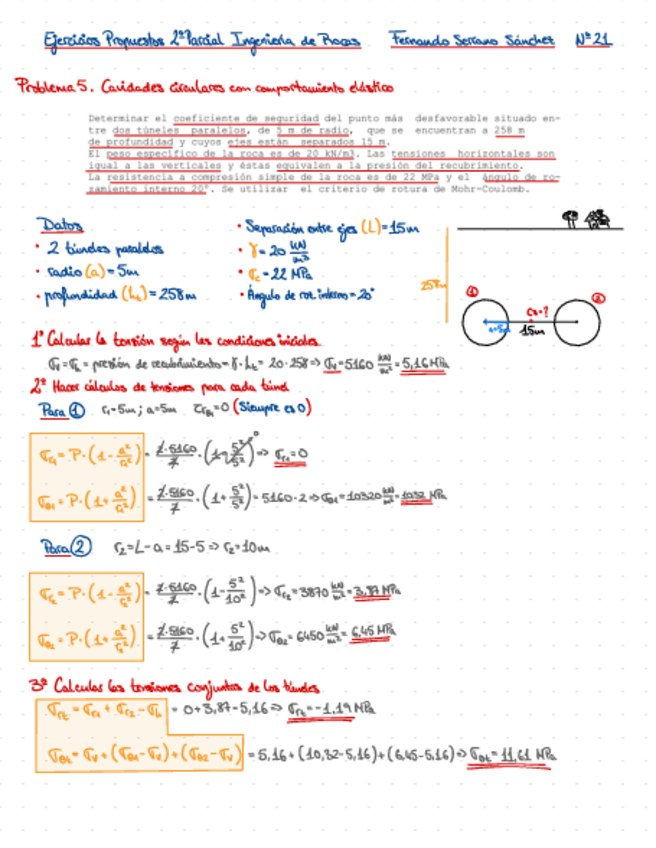 Ejercicios Propuestos 2º Parcial Ingeniería de Rocas Fernando Serrano Sánchez Nº 21
Problema 5. Cavidades circulares con comportamiento elástico
Determinar el coeficiente de seguridad del punto más desfavorable situado en-
tre dos túneles paralelos, de 5 m de radio, que se encuentran a 258 m
de profundidad y cuyos ejes están separados 15 m.
El peso específico de la roca es de 20 kN/m3. Las tensiones horizontales son
igual a las verticales y éstas equivalen a la presión del recubrimiento.
La resistencia a compresión simple de la roca es de 22 MPa y el ángulo de ro-
zamiento interno 20º. Se utilizar el criterio de rotura de Mohr-Coulomb.
Datos
• 2 túneles paralelos
• radio (a) = 5m
• profundidad (ht) = 258m
• Separación entre ejes (L) = 15m
• γ = 20 kN/m³
• σc = 22 MPa
• Ángulo de roz. interno = 20º
258m
① ②
CS=?
a=5m 15m
1º Calcular la tensión según las condiciones iniciales
σv = σh = presión de recubrimiento = γ · ht = 20 · 258 => σv = 5160 kN/m² = 5,16 MPa
2º Hacer cálculos de tensiones para cada túnel
Para ① r1 = 5m ; a = 5m τrθ1 = 0 (Siempre es 0)
σr1 = P · (1 - a²/r1²) = 2·5160/2 · (1 - 5²/5²)⁰ => σr1 = 0
σθ1 = P · (1 + a²/r1²) = 2·5160/2 · (1 + 5²/5²) = 5160 · 2 => σθ1 = 10320 kN/m² = 10,32 MPa
Para ② r2 = L - a = 15 - 5 => r2 = 10m
σr2 = P · (1 - a²/r2²) = 2·5160/2 · (1 - 5²/10²) => σr2 = 3870 kN/m² = 3,87 MPa
σθ2 = P · (1 + a²/r2²) = 2·5160/2 · (1 + 5²/10²) => σθ2 = 6450 kN/m² = 6,45 MPa
3º Calcular las tensiones conjuntas de los túneles
σrt = σr1 + σr2 - σh = 0 + 3,87 - 5,16 => σrt = -1,19 MPa
σθt = σv + (σθ1 - σv) + (σθ2 - σv) = 5,16 + (10,32 - 5,16) + (6,45 - 5,16) => σθt = 11,61 MPa